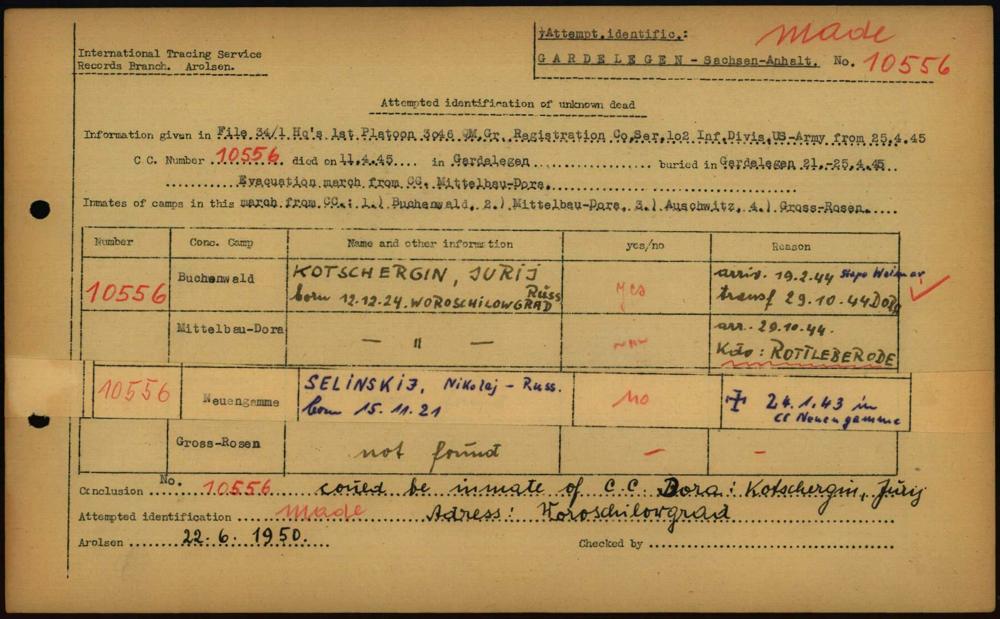 International Tracing Service
Records Branch. Arolsen.
Attempt.identific.:
made
GARDELEGEN - Sachsen-Anhalt. No. 10556
Attempted identification of unknown dead
Information given in File 34/1 Hq's 1st Platoon 3046 QM.Gr. Registration Co.Ser.102 Inf.Divis.US-Army from 25.4.45
C.C. Number 10556 died on 11.4.45.... in Gardelegen................ buried in Gardelegen 21.-25.4.45
Evacuation march from CC. Mittelbau-Dora.
Inmates of camps in this march from CC.: 1.) Buchenwald, 2.) Mittelbau-Dora, 3.) Auschwitz, 4.) Gross-Rosen.
Number Conc. Camp Name and other information yes/no Reason
10556 Buchenwald KOTSCHERGIN, JURIJ Russ born 12.12.24. WOROSCHILOWGRAD yes arriv. 19.2.44 Stapo Weimar
transf 29.10.44 Dora
Mittelbau-Dora — " — arr. 29.10.44.
Kdo: ROTTLEBERODE
10556 Neuengamme SELINSKIJ, Nikolaj - Russ. no ✝ 24.1.43 in
born 15.11.21 CC Neuengamme
Gross-Rosen not found — —
Conclusion No. 10556 could be inmate of C.C. Dora: Kotschergin, Jurij
Attempted identification made Adress: Woroschilowgrad
Arolsen 22.6.1950. Checked by